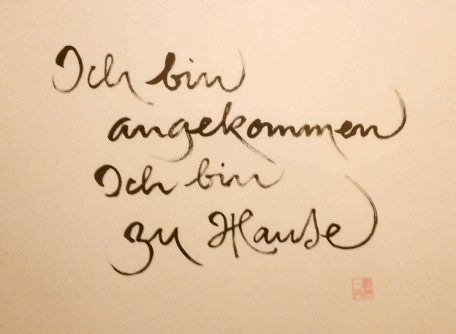 Ich bin
angekommen
Ich bin
zu Hause